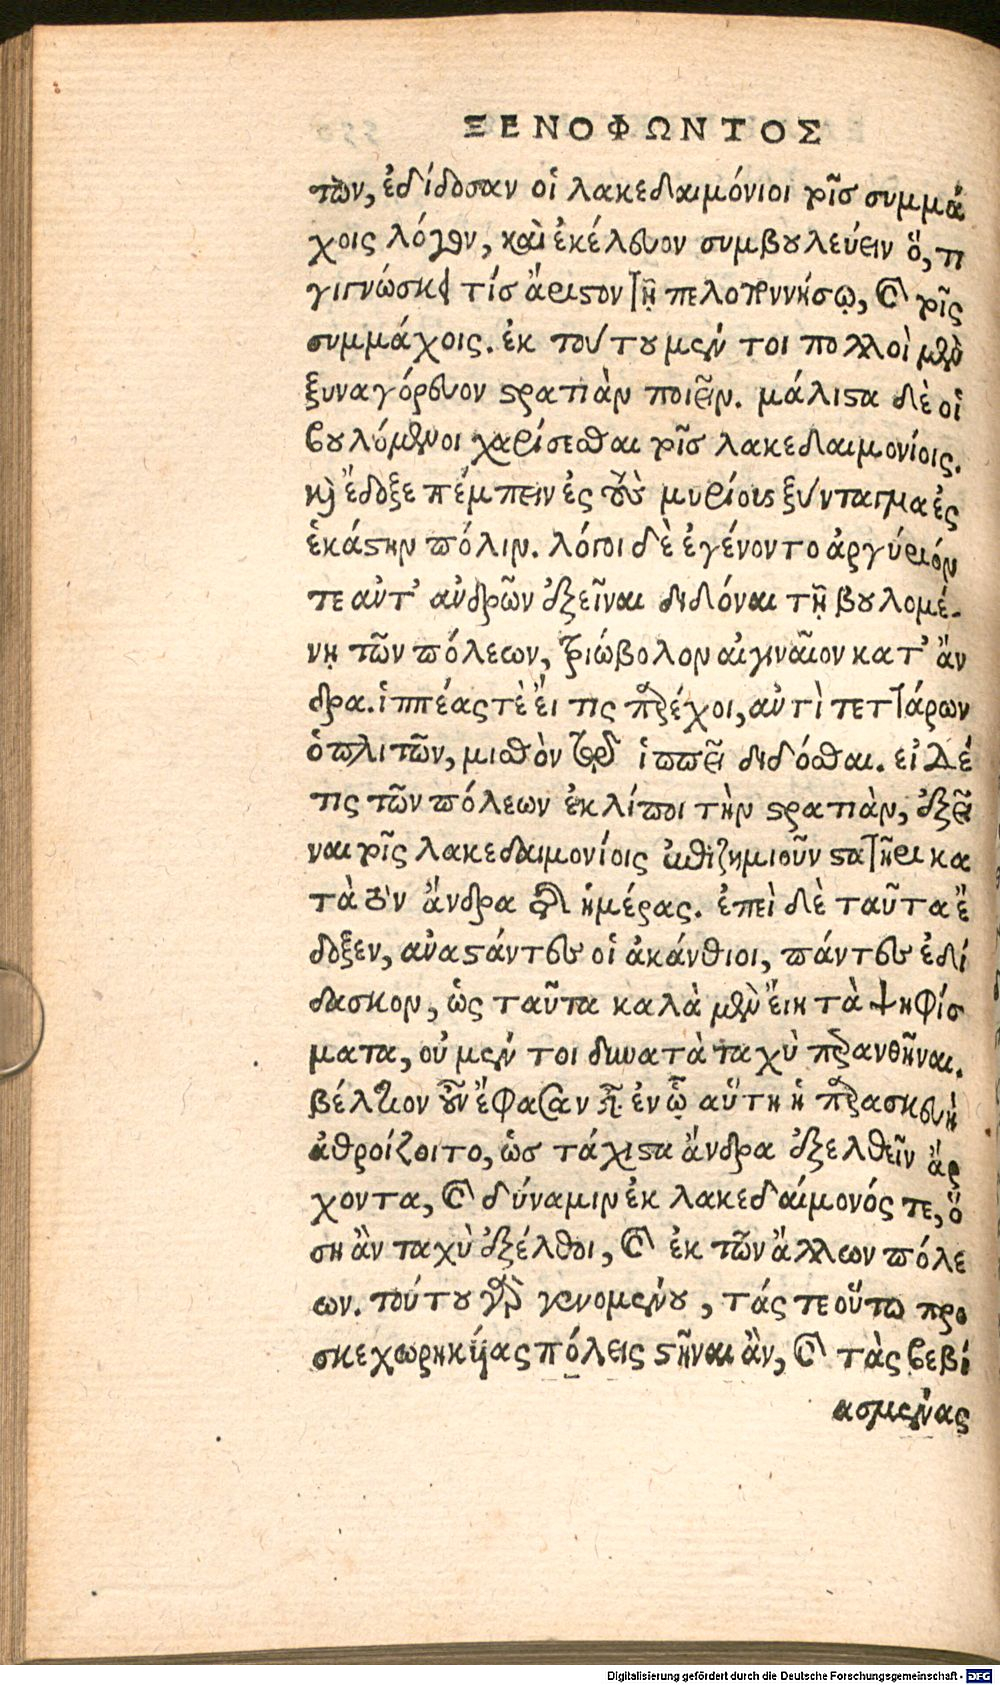 ΞΕΝΟΦΩΝΤΟΣ
των, ἐδίδοσαν οἱ λακεδαιμόνιοι τοῖς συμμά
χοις λόγον, καὶ ἐκέλευον συμβουλεύειν ὅ, τι
γιγνώσκει τίς ἄριστον τῇ πελοποννήσῳ, καὶ τοῖς
συμμάχοις. ἐκ τούτου μέν τοι πολλοὶ μὲν
ξυναγόρευον στρατιὰν ποιεῖν. μάλιστα δὲ οἱ
βουλόμενοι χαρίσεσθαι τοῖς λακεδαιμονίοις.
καὶ ἔδοξε πέμπειν ἐς τοὺς μυρίους ξύνταγμα ἐς
ἑκάστην πόλιν. λόγοι δὲ ἐγένοντο ἀργύριόν
τε ἀντ' ἀνδρῶν ἐξεῖναι διδόναι τῇ βουλομέ-
νῃ τῶν πόλεων, τριώβολον αἰγιναῖον κατ' ἄν
δρα. ἱππέας τὲ εἴ τις παρέχοι, ἀντὶ τεττάρων
ὁπλιτῶν, μισθὸν τῷ ἱππεῖ διδόσθαι. εἰ δέ
τις τῶν πόλεων ἐκλίποι τὴν στρατιὰν, ἐξεῖ
ναι τοῖς λακεδαιμονίοις ἐπιζημιοῦν στατῆρι κα
τὰ τὸν ἄνδρα τῆς ἡμέρας. ἐπεὶ δὲ ταῦτα ἔ
δοξεν, ἀναστάντες οἱ ἀκάνθιοι, πάντες ἐδί
δασκον, ὡς ταῦτα καλὰ μὲν εἴη τὰ ψηφίσ
ματα, οὐ μέν τοι δυνατὰ ταχὺ περανθῆναι.
βέλτιον οὖν ἔφασαν εἶ. ἐν ᾧ αὕτη ἡ παρασκευὴ
ἀθροίζοιτο, ὡς τάχιστα ἄνδρα ἐξελθεῖν ἄρ
χοντα, καὶ δύναμιν ἐκ λακεδαίμονός τε, ὅ
ση ἂν ταχὺ ἐξέλθοι, καὶ ἐκ τῶν ἄλλων πόλε
ων. τούτου γὰρ γενομένου, τάς τε οὔτω προ
σκεχωρηκυίας πόλεις στῆναι ἂν, καὶ τὰς βεβι
ασμένας
Digitalisierung gefördert durch die Deutsche Forschungsgemeinschaft - DFG